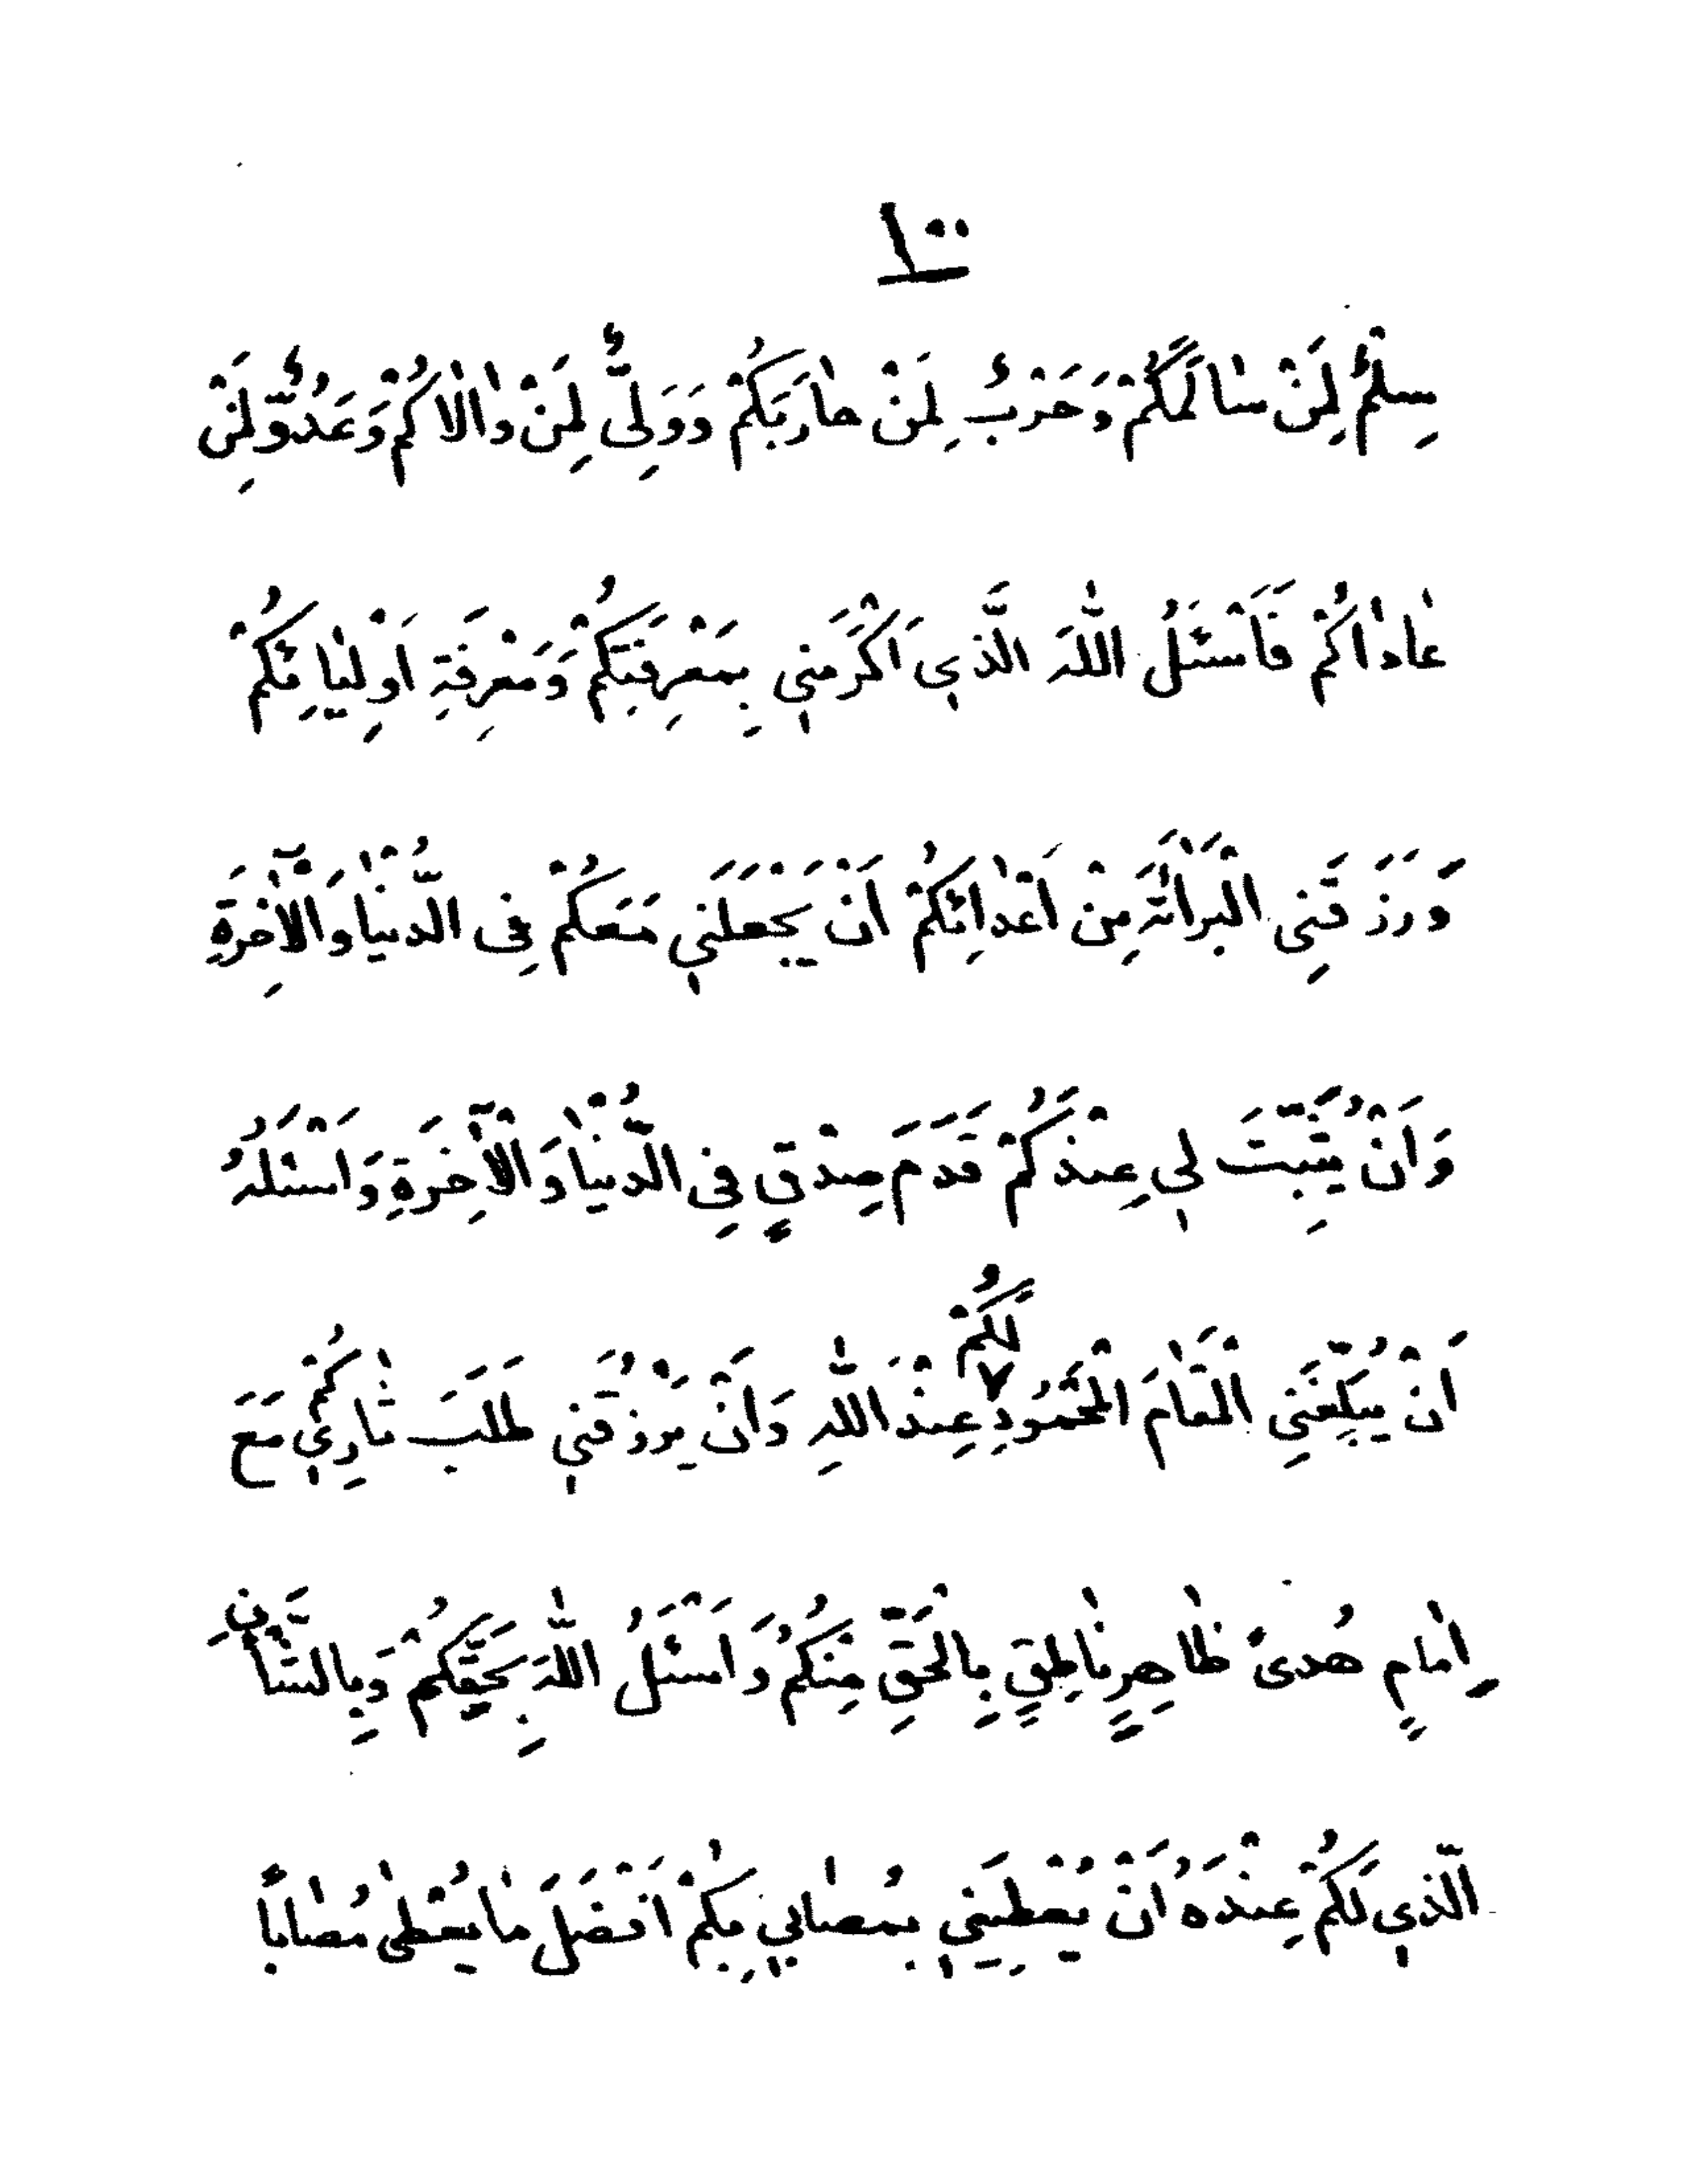 ١٠٠
سِلْمٌ لِمَنْ سٰالَمَكُمْ وَحَرْبٌ لِمَنْ حٰارَبَكُمْ وَوَلِىٌّ لِمَنْ وٰالٰاكُمْ وَعَدُوٌّ لِمَنْ
عٰادٰاكُمْ فَاَسْئَلُ اللّٰهَ الَّذي اَكْرَمَني بِمَعْرِفَتِكُمْ وَمَعْرِفَةِ اَوْلِيٰائِكُمْ
وَرَزَقَنِى الْبَرٰائَةَ مِنْ اَعْدٰائِكُمْ اَنْ يَجْعَلَني مَعَكُمْ فِى الدُّنْيٰا وَالْآخِرَةِ
وَاَنْ يُثَبِّتَ لي عِنْدَكُمْ قَدَمَ صِدْقٍ فِى الدُّنْيٰا وَالْآخِرَةِ وَاَسْئَلُهُ
اَنْ يُبَلِّغَنِى الْمَقٰامَ الْمَحْمُودِ لَكُمْ عِنْدَ اللّٰهِ وَاَنْ يَرْزُقَني طَلَبَ ثٰارِي كُمْ مَعَ
اِمٰامٍ هُدىً ظٰاهِرٍ نٰاطِقٍ بِالْحَقِّ مِنْكُمْ وَاَسْئَلُ اللّٰهَ بِحَقِّكُمْ وَبِالشَّأْنِ
الَّذي لَكُمْ عِنْدَهُ اَنْ يُعْطِيَني بِمُصٰابي بِكُمْ اَفْضَلَ مٰا يُعْطٰى مُصٰاباً